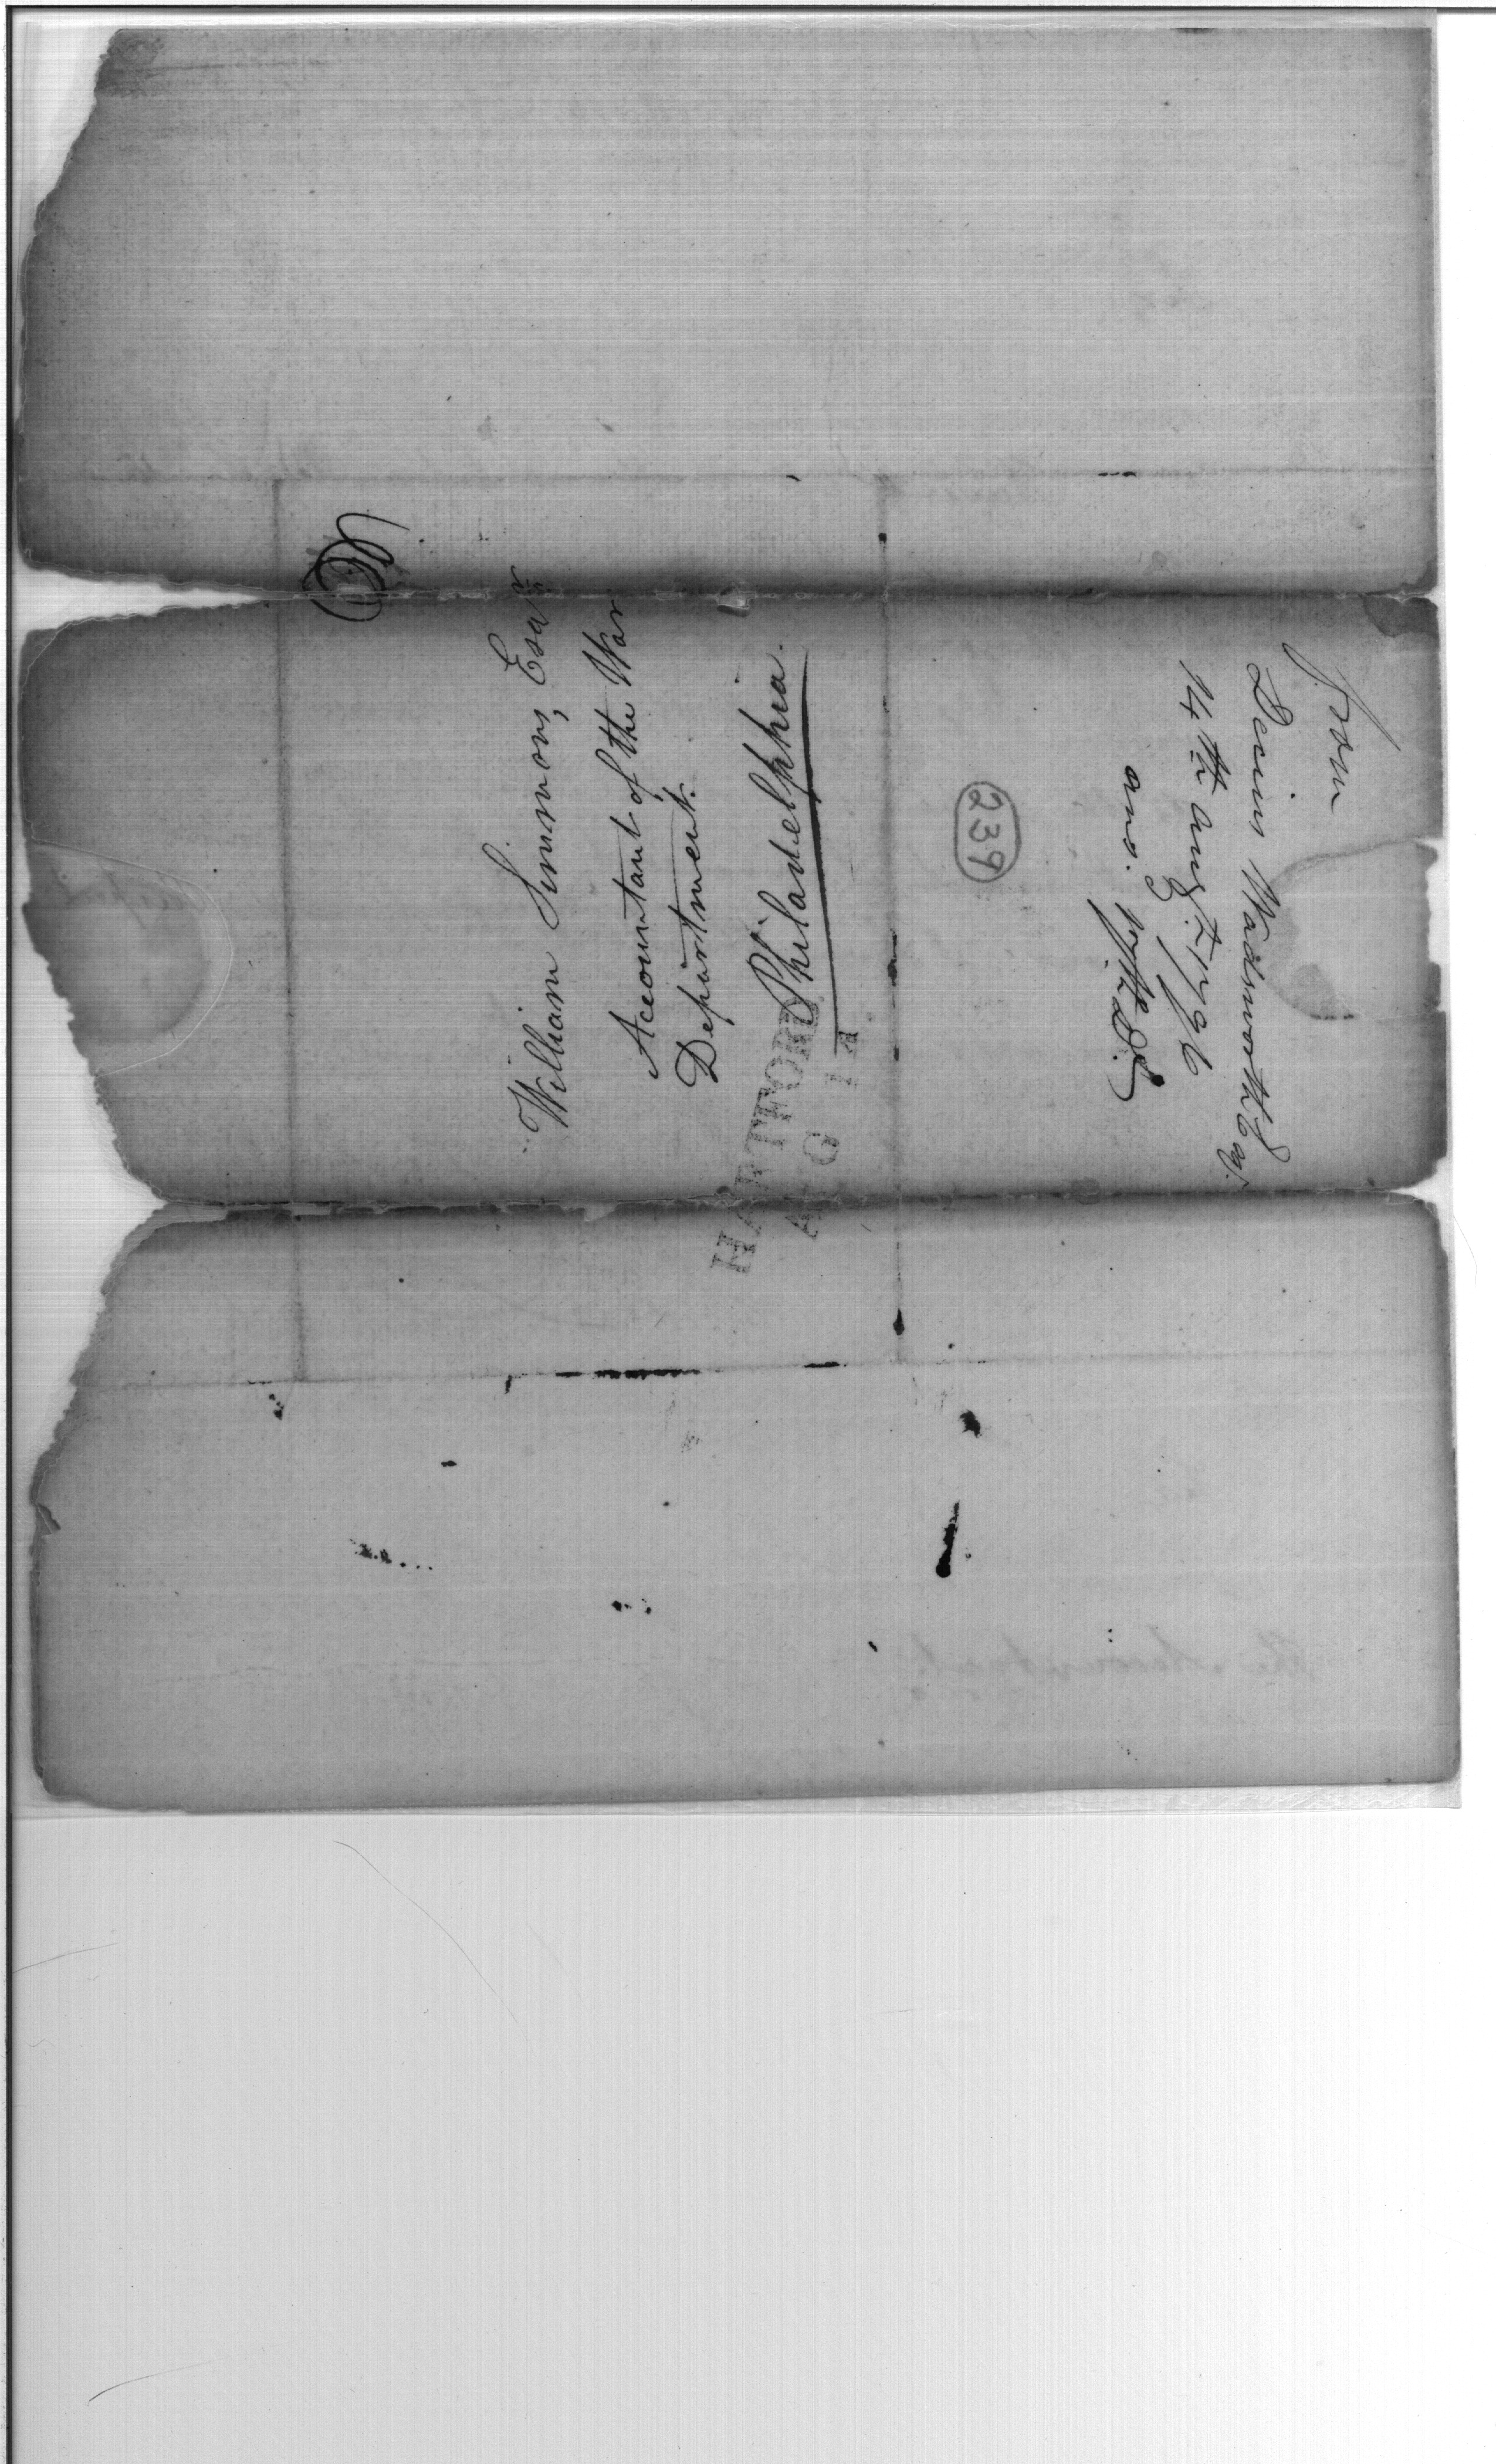 William Simmons, Esqr
Accountant of the War
Department.
Philadelphia.
HARTFORD
AUG 14
239
from
Decius Wadsworth Esq.
14th augt. 1796
ans.